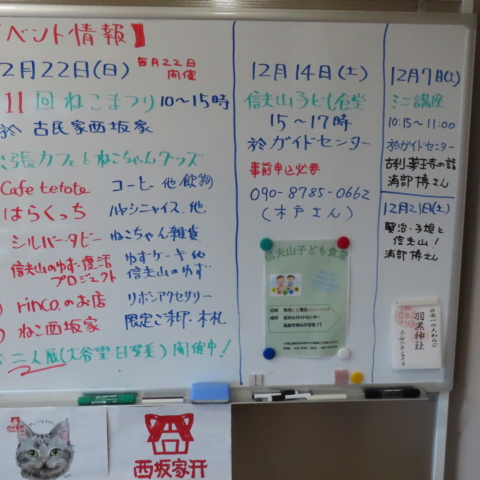 ベント情報】
2月22日(日) 毎月22日
開催
11回 ねこまつり 10〜15時
於 古民家西坂家
張カフェとねこちゃんグッズ
Cafe tetote コーヒー他飲物
はらくっち ハヤシライス 他
シルバータビー ねこちゃん雑貨
信夫山のゆず復活
プロジェクト
ゆずケーキ 他
信夫山のゆず
rinco.のお店 リボンアクセサリー
ねこ西坂家 限定ご朱印・木札
二人展(大谷望 日望美) 開催中!
12月14日(土)
信夫山子ども食堂
15〜17時
於ガイドセンター
事前申込必要
090-8785-0662
(木戸さん)
信夫山子ども食堂
12月7日(土)
ミニ講座
10:15〜11:00
於ガイドセンター
浦部博さん
12月21日(土)
賢治・子規と
信夫山!
浦部博さん
日本一の大わらじ
羽黒神社
西坂家